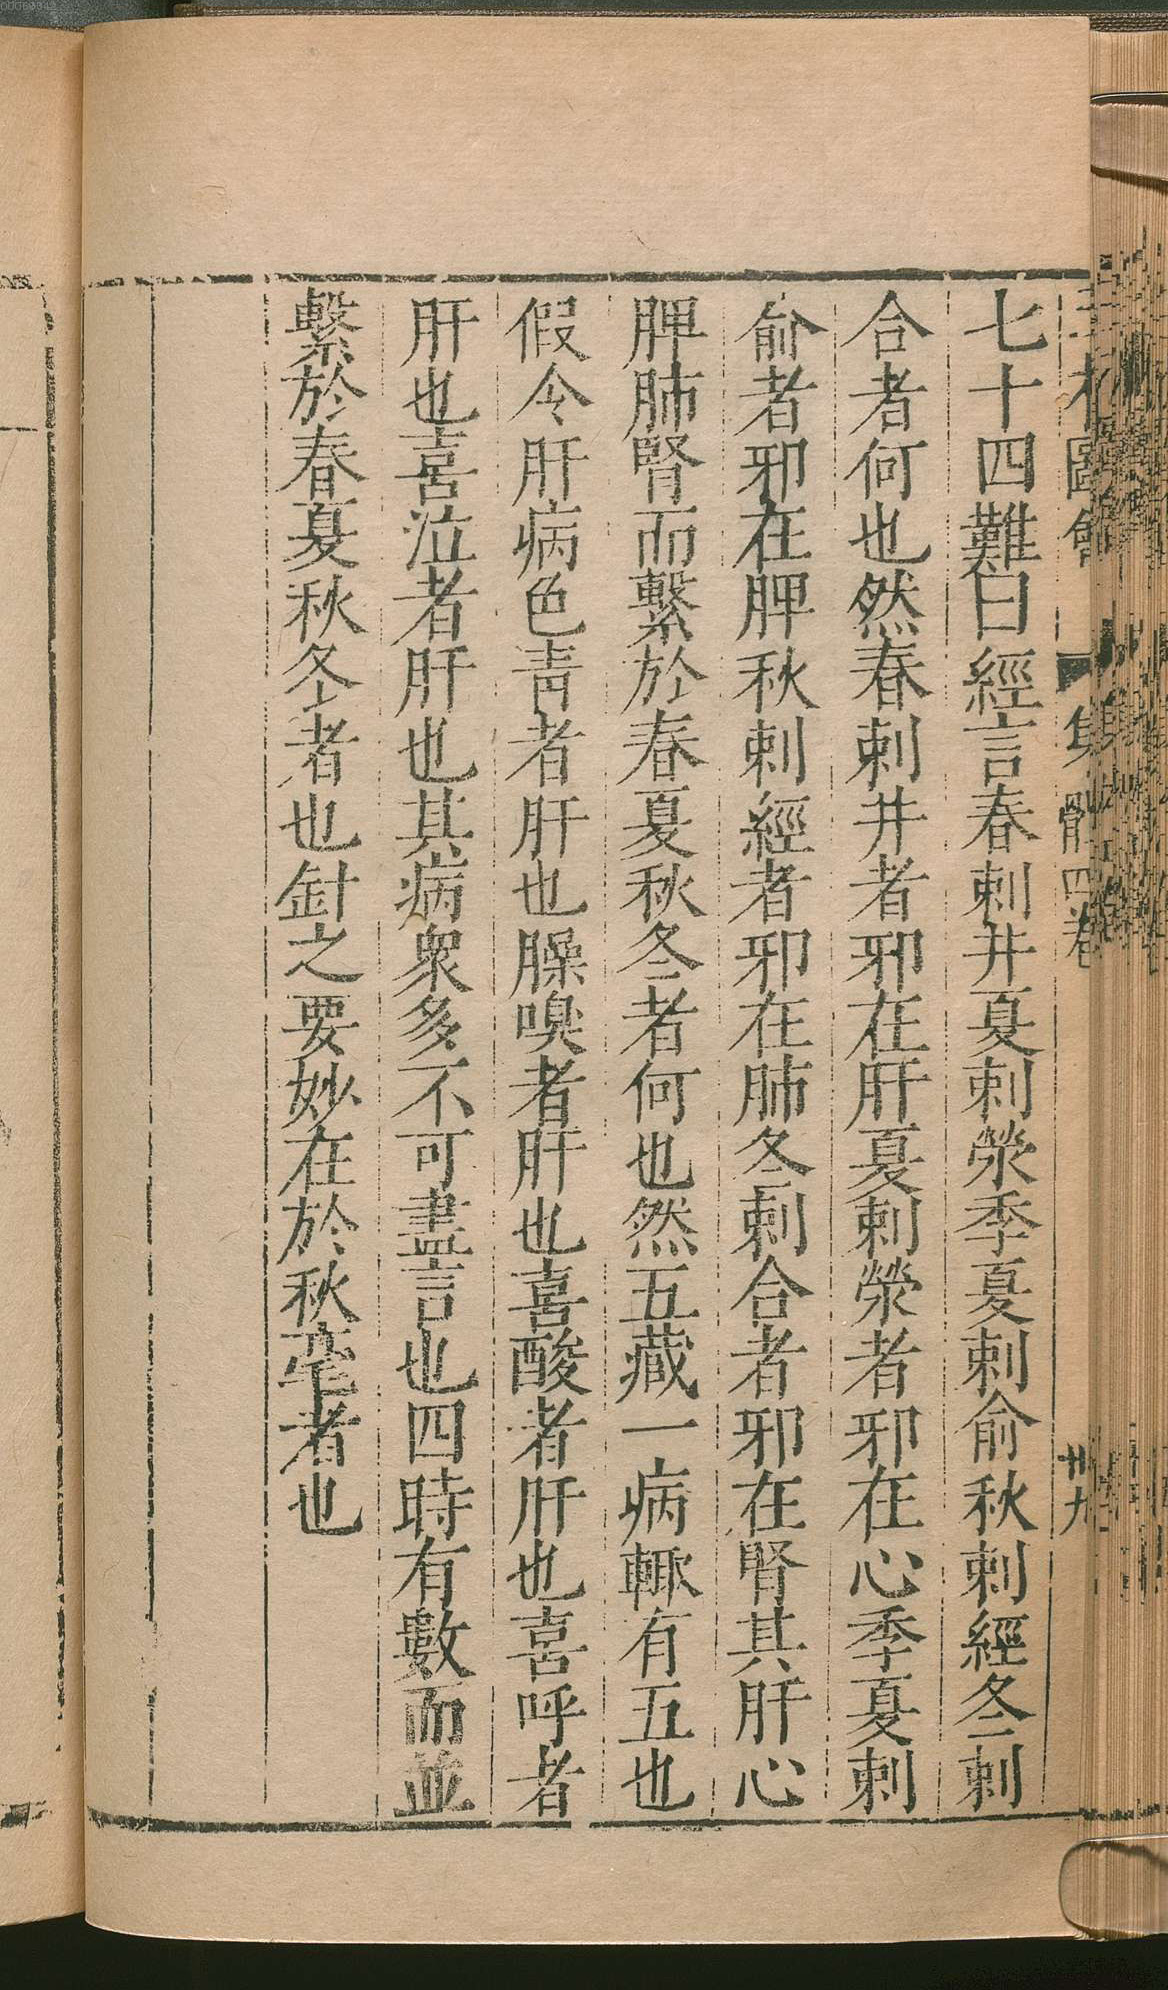 七十四難曰經言春刺井夏刺滎季夏刺俞秋刺經冬刺
合者何也然春刺井者邪在肝夏刺滎者邪在心季夏刺
俞者邪在脾秋刺經者邪在肺冬刺合者邪在腎其肝心
脾肺腎而繫於春夏秋冬者何也然五藏一病輙有五也
假令肝病色青者肝也臊嗅者肝也喜酸者肝也喜呼者
肝也喜泣者肝也其病衆多不可盡言也四時有數而並
繫於春夏秋冬者也針之要妙在於秋毫者也